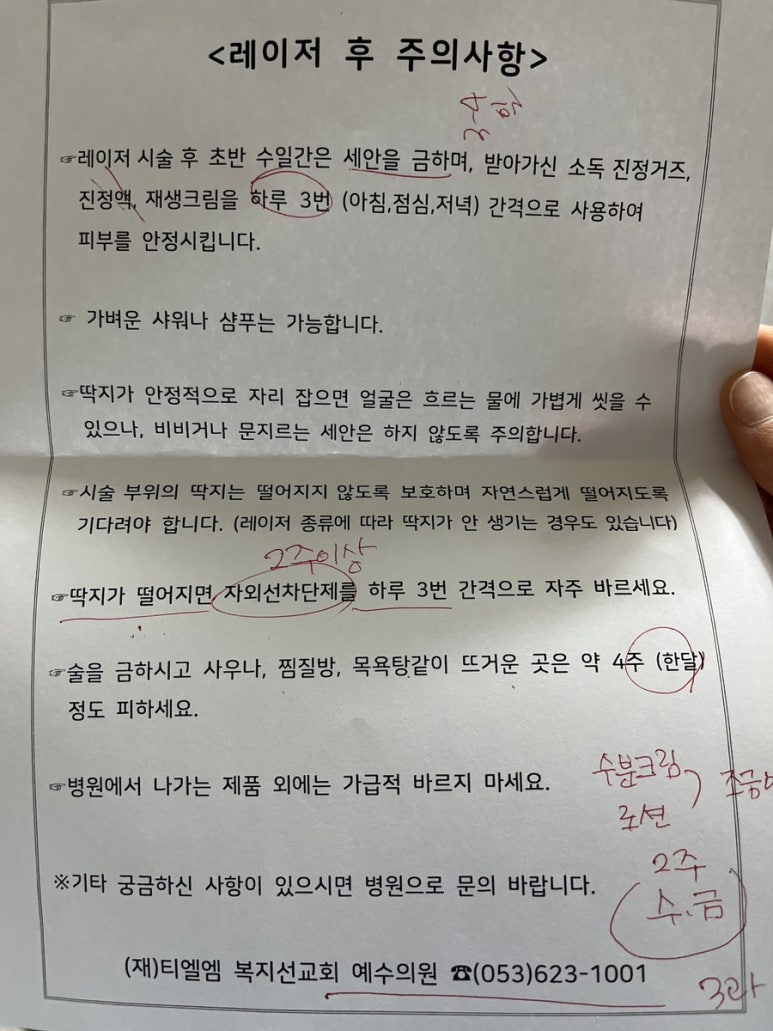 <레이저 후 주의사항>
☞레이저 시술 후 초반 수일간은 세안을 금하며, 받아가신 소독 진정거즈,
진정액, 재생크림을 하루 3번 (아침,점심,저녁) 간격으로 사용하여
피부를 안정시킵니다.
☞ 가벼운 샤워나 샴푸는 가능합니다.
☞딱지가 안정적으로 자리 잡으면 얼굴은 흐르는 물에 가볍게 씻을 수
있으나, 비비거나 문지르는 세안은 하지 않도록 주의합니다.
☞시술 부위의 딱지는 떨어지지 않도록 보호하며 자연스럽게 떨어지도록
기다려야 합니다. (레이저 종류에 따라 딱지가 안 생기는 경우도 있습니다)
2주이상
☞딱지가 떨어지면 자외선차단제를 하루 3번 간격으로 자주 바르세요.
☞술을 금하시고 사우나, 찜질방, 목욕탕같이 뜨거운 곳은 약 4주 (한달)
정도 피하세요.
☞병원에서 나가는 제품 외에는 가급적 바르지 마세요.
수분크림
로션
2주
수.금
※기타 궁금하신 사항이 있으시면 병원으로 문의 바랍니다.
(재)티엘엠 복지선교회 예수의원 ☎(053)623-1001